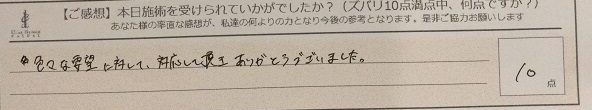 【ご感想】本日施術を受けられていかがでしたか？（ズバリ10点満点中、何点ですか？）
あなた様の率直な感想が、私達の何よりの力となり今後の参考となります。是非ご協力お願いします
色々な要望に対して、対応して頂き ありがとうございました。
10
点